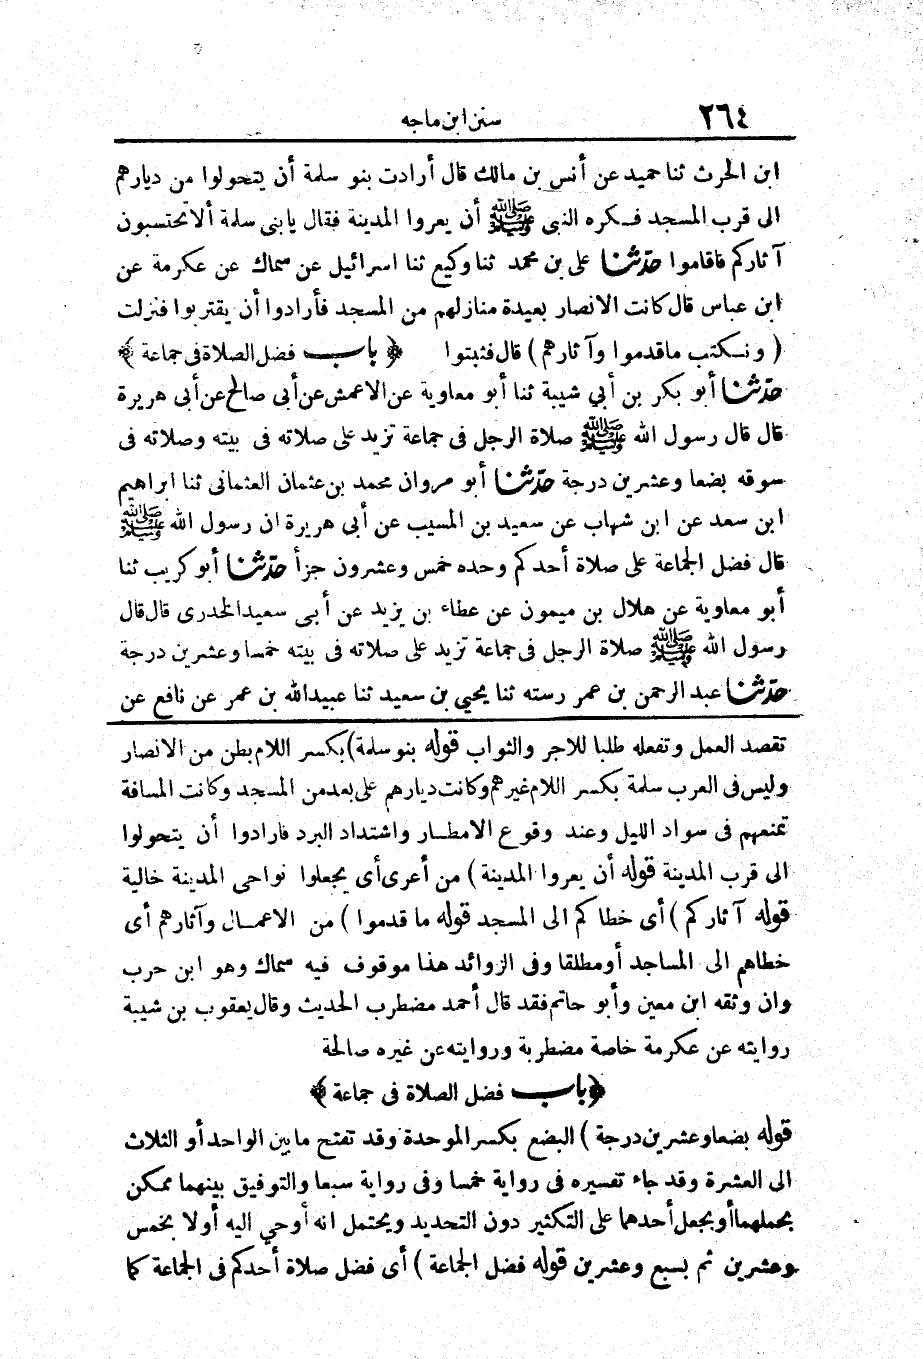 ٢٦٤ سنن ابن ماجه
ابن الحرث ثنا حميد عن أنس بن مالك قال أرادت بنو سلمة أن يتحولوا من ديارهم
الى قرب المسجد فكره النبى ﷺ أن يعروا المدينة فقال يابنى سلمة ألاتحتسبون
آثاركم فاقاموا حدّثنا على بن محمد ثنا وكيع ثنا اسرائيل عن سماك عن عكرمة عن
ابن عباس قال كانت الانصار بعيدة منازلهم من المسجد فأرادوا أن يقتربوا فنزلت
( ونكتب ماقدموا وآثارهم ) قال فثبتوا ﴿ باب فضل الصلاة فى جماعة ﴾
حدّثنا أبو بكر بن أبي شيبة ثنا أبو معاوية عن الاعمش عن أبى صالح عن أبى هريرة
قال قال رسول الله ﷺ صلاة الرجل فى جماعة تزيد على صلاته فى بيته وصلاته فى
سوقه بضعا وعشرين درجة حدّثنا أبو مروان محمد بن عثمان العثمانى ثنا ابراهيم
ابن سعد عن ابن شهاب عن سعيد بن المسيب عن أبى هريرة ان رسول الله ﷺ
قال فضل الجماعة على صلاة أحدكم وحده خمس وعشرون جزأ حدّثنا أبو كريب ثنا
أبو معاوية عن هلال بن ميمون عن عطاء بن يزيد عن أبى سعيد الخدرى قال قال
رسول الله ﷺ صلاة الرجل فى جماعة تزيد على صلاته فى بيته خمسا وعشرين درجة
حدّثنا عبد الرحمن بن عمر رسته ثنا يحيي بن سعيد ثنا عبيدالله بن عمر عن نافع عن
تقصد العمل وتفعله طلبا للاجر والثواب قوله بنو سلمة) بكسر اللام بطن من الانصار
وليس فى العرب سلمة بكسر اللام غيرهم وكانت ديارهم على بعد من المسجد وكانت المسافة
تمنعهم فى سواد الليل وعند وقوع الامطار واشتداد البرد فارادوا أن يتحولوا
الى قرب المدينة قوله أن يعروا المدينة ) من أعرى أى يجعلوا نواحى المدينة خالية
قوله آثاركم ) أى خطاكم الى المسجد قوله ما قدموا ) من الاعمال وآثارهم أى
خطاهم الى المساجد أومطلقا وفى الزوائد هذا موقوف فيه سماك وهو ابن حرب
وان وثقه ابن معين وأبو حاتم فقد قال أحمد مضطرب الحديث وقال يعقوب بن شيبة
روايته عن عكرمة خاصة مضطربة وروايته عن غيره صالحة
﴿ باب فضل الصلاة فى جماعة ﴾
قوله بضعا وعشرين درجة ) البضع بكسر الموحدة وقد تفتح ما بين الواحد أو الثلاث
الى العشرة وقد جاء تفسيره فى رواية خمسا وفى رواية سبعا والتوفيق بينهما ممكن
بحملهما أو بجعل أحدهما على التكثير دون التحديد ويحتمل انه أوحي اليه أولا بخمس
وعشرين ثم بسبع وعشرين قوله فضل الجماعة ) أى فضل صلاة أحدكم فى الجماعة كما